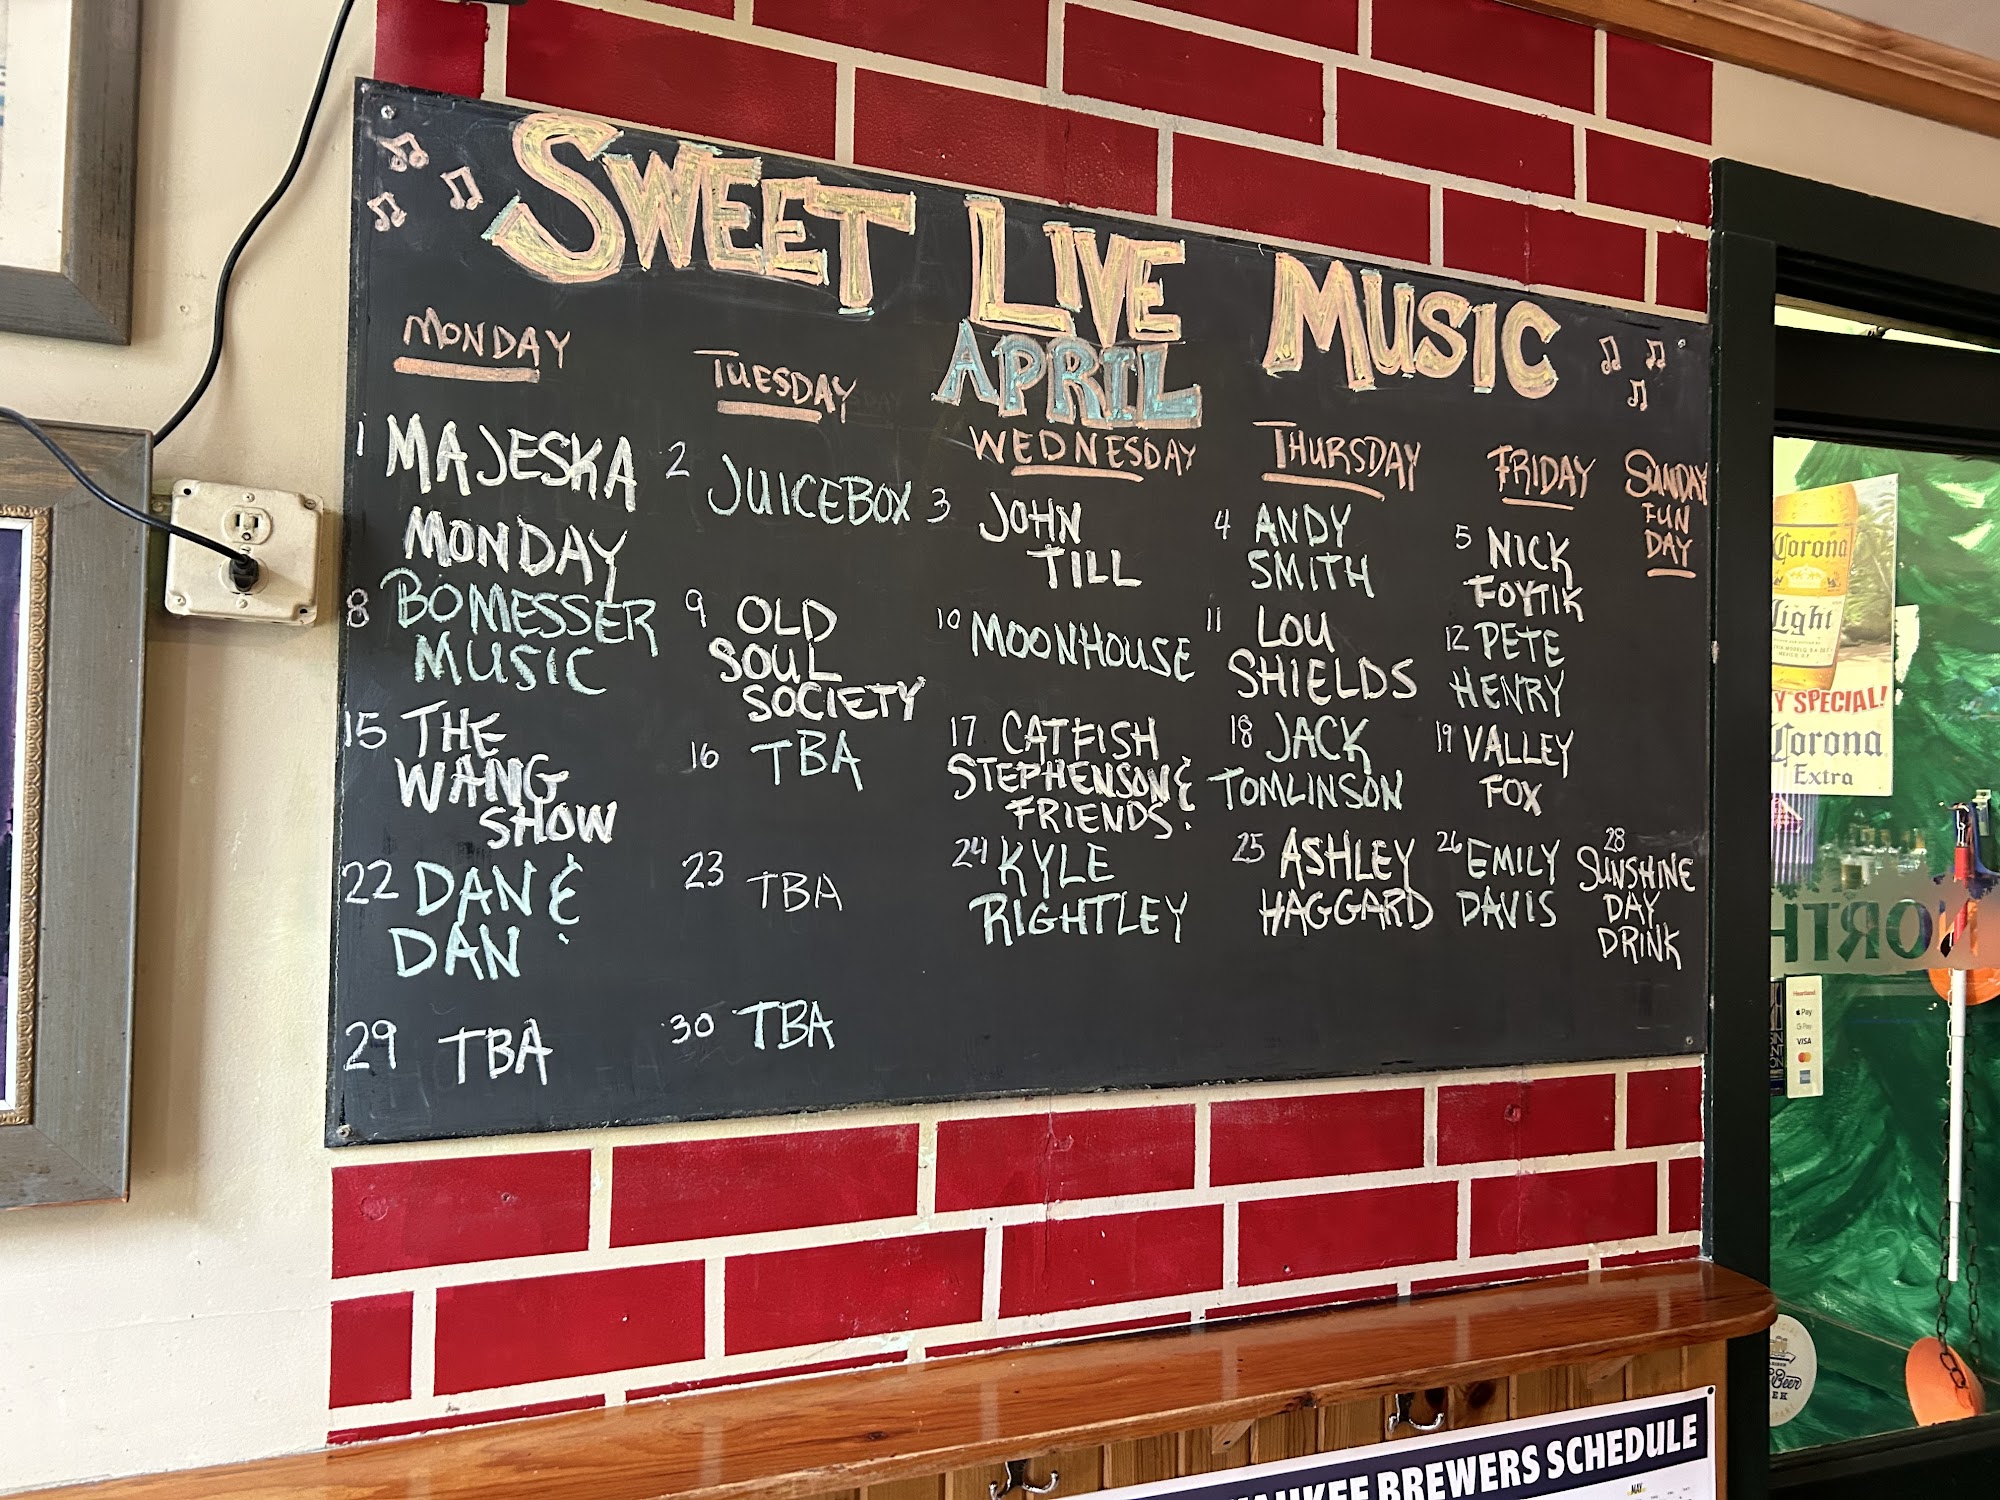 SWEET LIVE MUSIC
APRIL
MONDAY
TUESDAY
WEDNESDAY
THURSDAY
FRIDAY
SUNDAY
FUN
DAY
1 MAJESKA
MONDAY
2 JUICEBOX
3 JOHN
TILL
4 ANDY
SMITH
5 NICK
FOYTIK
8 BOMESSER
MUSIC
9 OLD
SOUL
SOCIETY
10 MOONHOUSE
11 LOU
SHIELDS
12 PETE
HENRY
15 THE
WANG
SHOW
16 TBA
17 CATFISH
STEPHENSON &
FRIENDS.
18 JACK
TOMLINSON
19 VALLEY
FOX
22 DAN &
DAN
23 TBA
24 KYLE
RIGHTLEY
25 ASHLEY
HAGGARD
26 EMILY
DAVIS
28
SUNSHINE
DAY
DRINK
29 TBA
30 TBA
Corona
Light
SPECIAL!
Corona
Extra
NORTH
Heartland
Pay
G Pay
VISA
Beer
BREWERS SCHEDULE
MAY